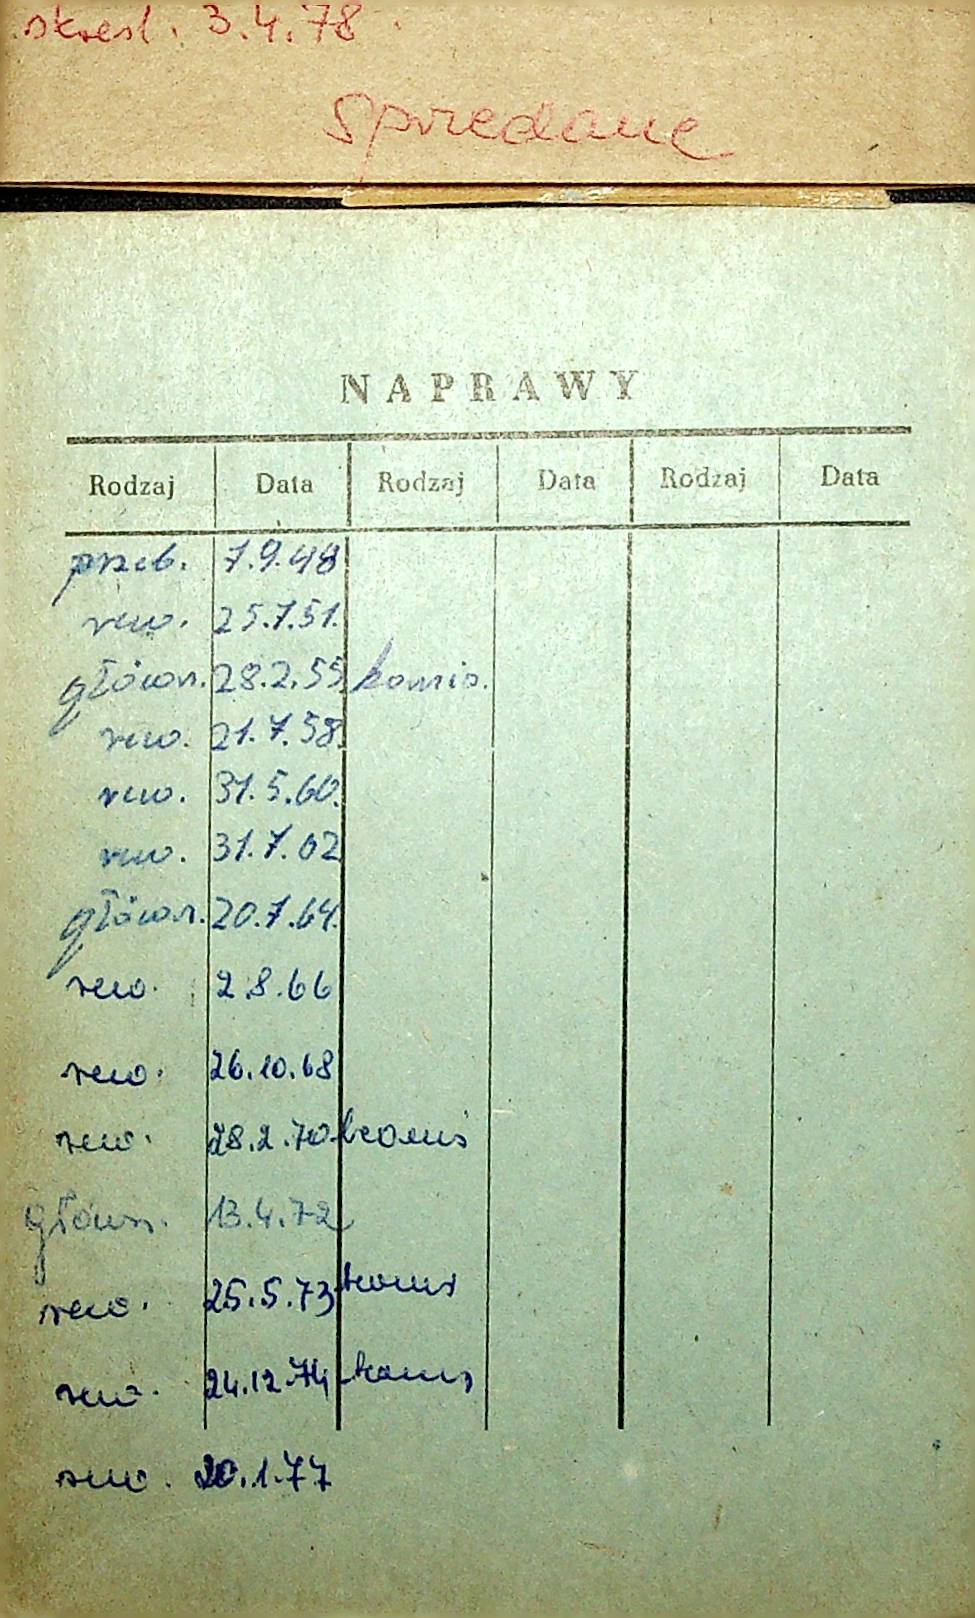 skreśl. 3.4.78.
sprzedane
NAPRAWY
Rodzaj Data Rodzaj Data Rodzaj Data
przeb. 7.9.48
rew. 25.7.51.
główn. 28.2.55. komis.
rew. 21.7.58.
rew. 31.5.60.
rew. 31.7.62
główn. 20.7.64.
rew. 2.8.66
rew. 26.10.68
rew. 28.2.70 komis
główn. 13.4.72
rew. 25.5.73 komis
rew. 24.12.74 komis
rew. 20.1.77